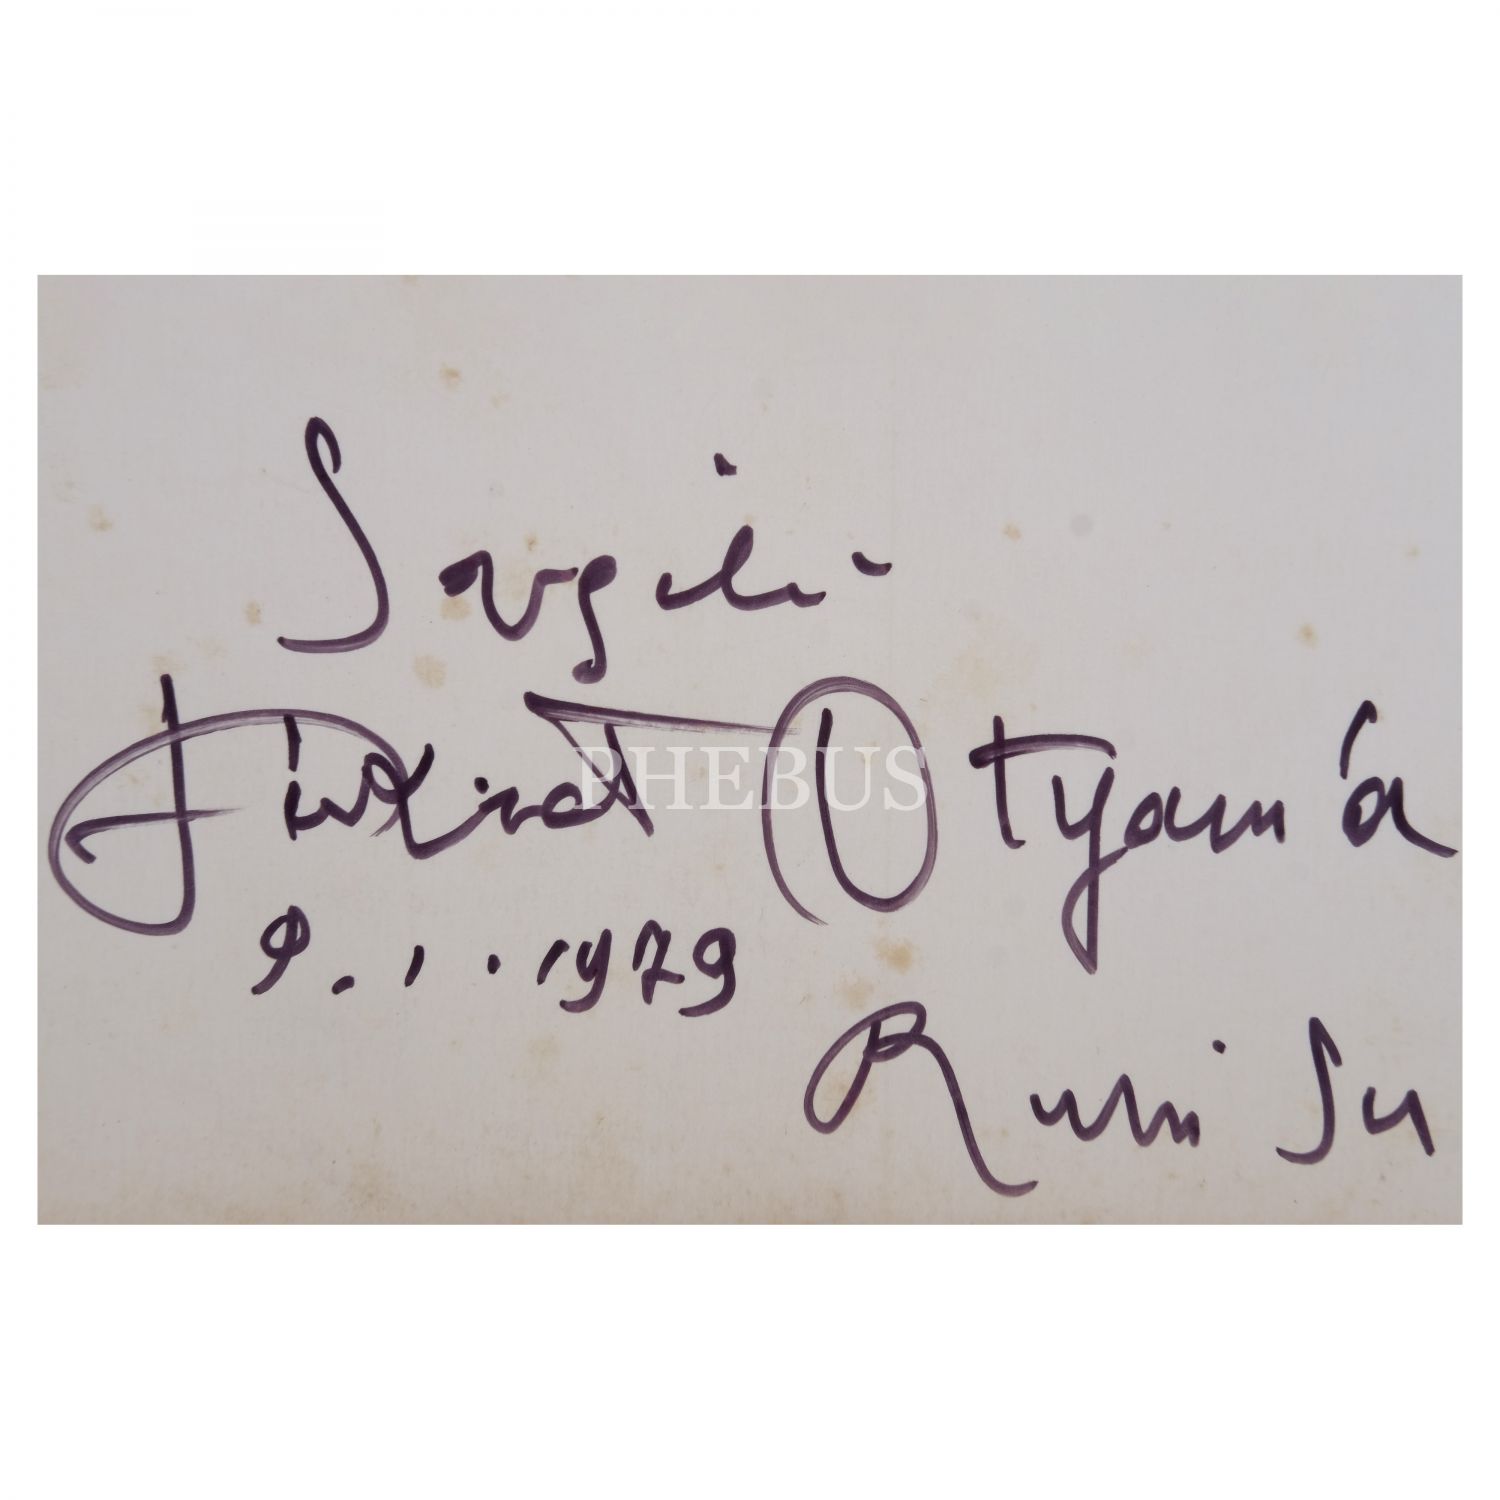 Sevgili
Fikret Otyam'a
9.1.1979
Ruhi Su
PHEBUS